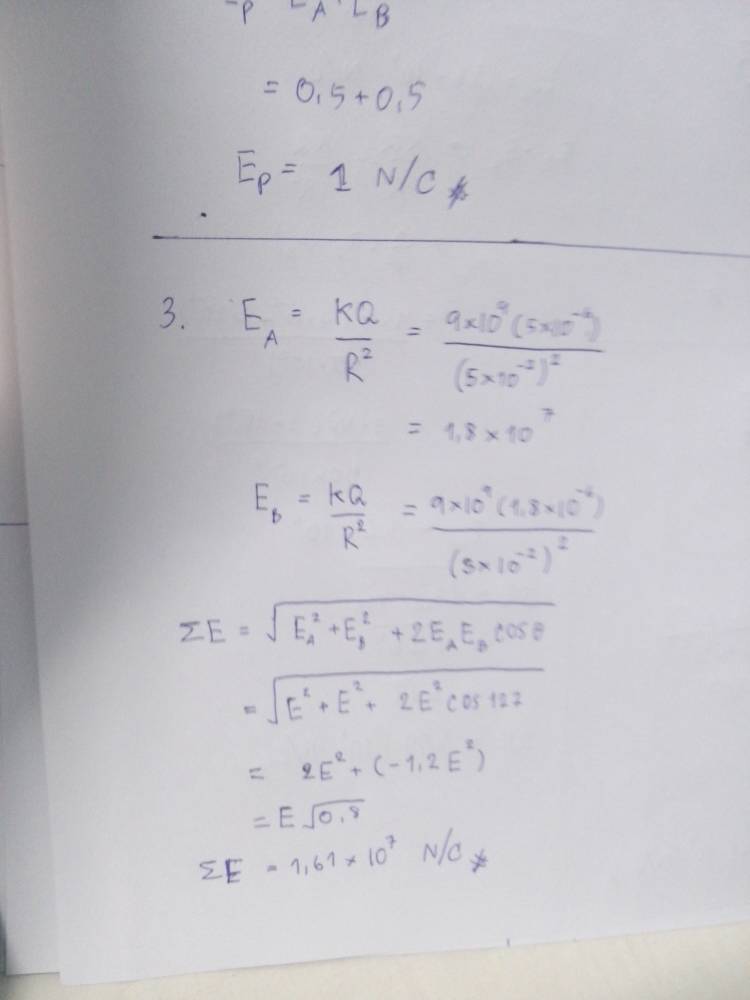 = 0,5 + 0,5
E_P = 1 N/C
3. E_A = kQ/R² = 9×10⁹ (5×10⁻⁶)/(5×10⁻²)²
= 1,8 × 10⁷
E_B = kQ/R² = 9×10⁹ (1,8×10⁻⁶)/(3×10⁻²)²
ΣE = √(E_A² + E_B² + 2E_A E_B cos θ)
= √(E² + E² + 2E² cos 127)
= 2E² + (-1,2E²)
= E √0,8
ΣE = 1,61 × 10⁷ N/C